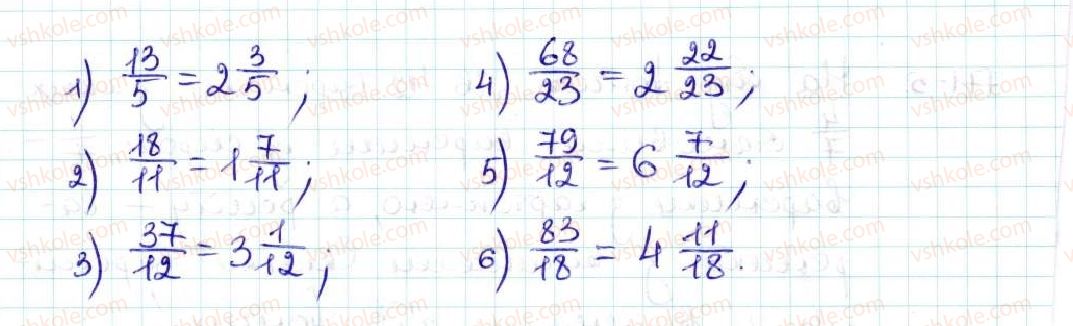 1) 13/5 = 2 3/5;
2) 18/11 = 1 7/11;
3) 37/12 = 3 1/12;
4) 68/23 = 2 22/23;
5) 79/12 = 6 7/12;
6) 83/18 = 4 11/18.
vshkole.com